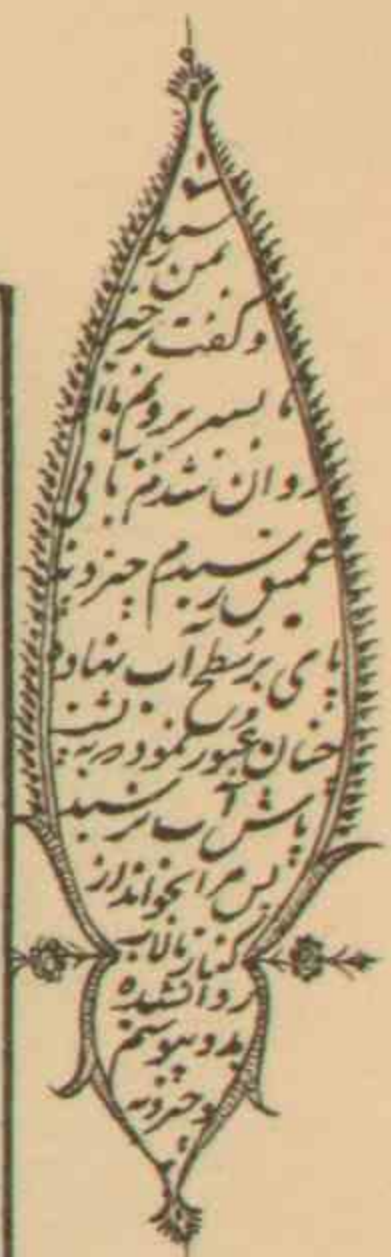 رسید
بمن
و گفت برخیز
تا بسیر رویم با او
روان شدم تا بآبی
عمیق رسیدم خیزرونه
پای بر سطح آب نهاده
چنان عبور نمود که پشت
پایش بآب نرسید
پس مرا بخواند از
کنار تالاب
روانشده
بدو پیوستم
و خیزرونه